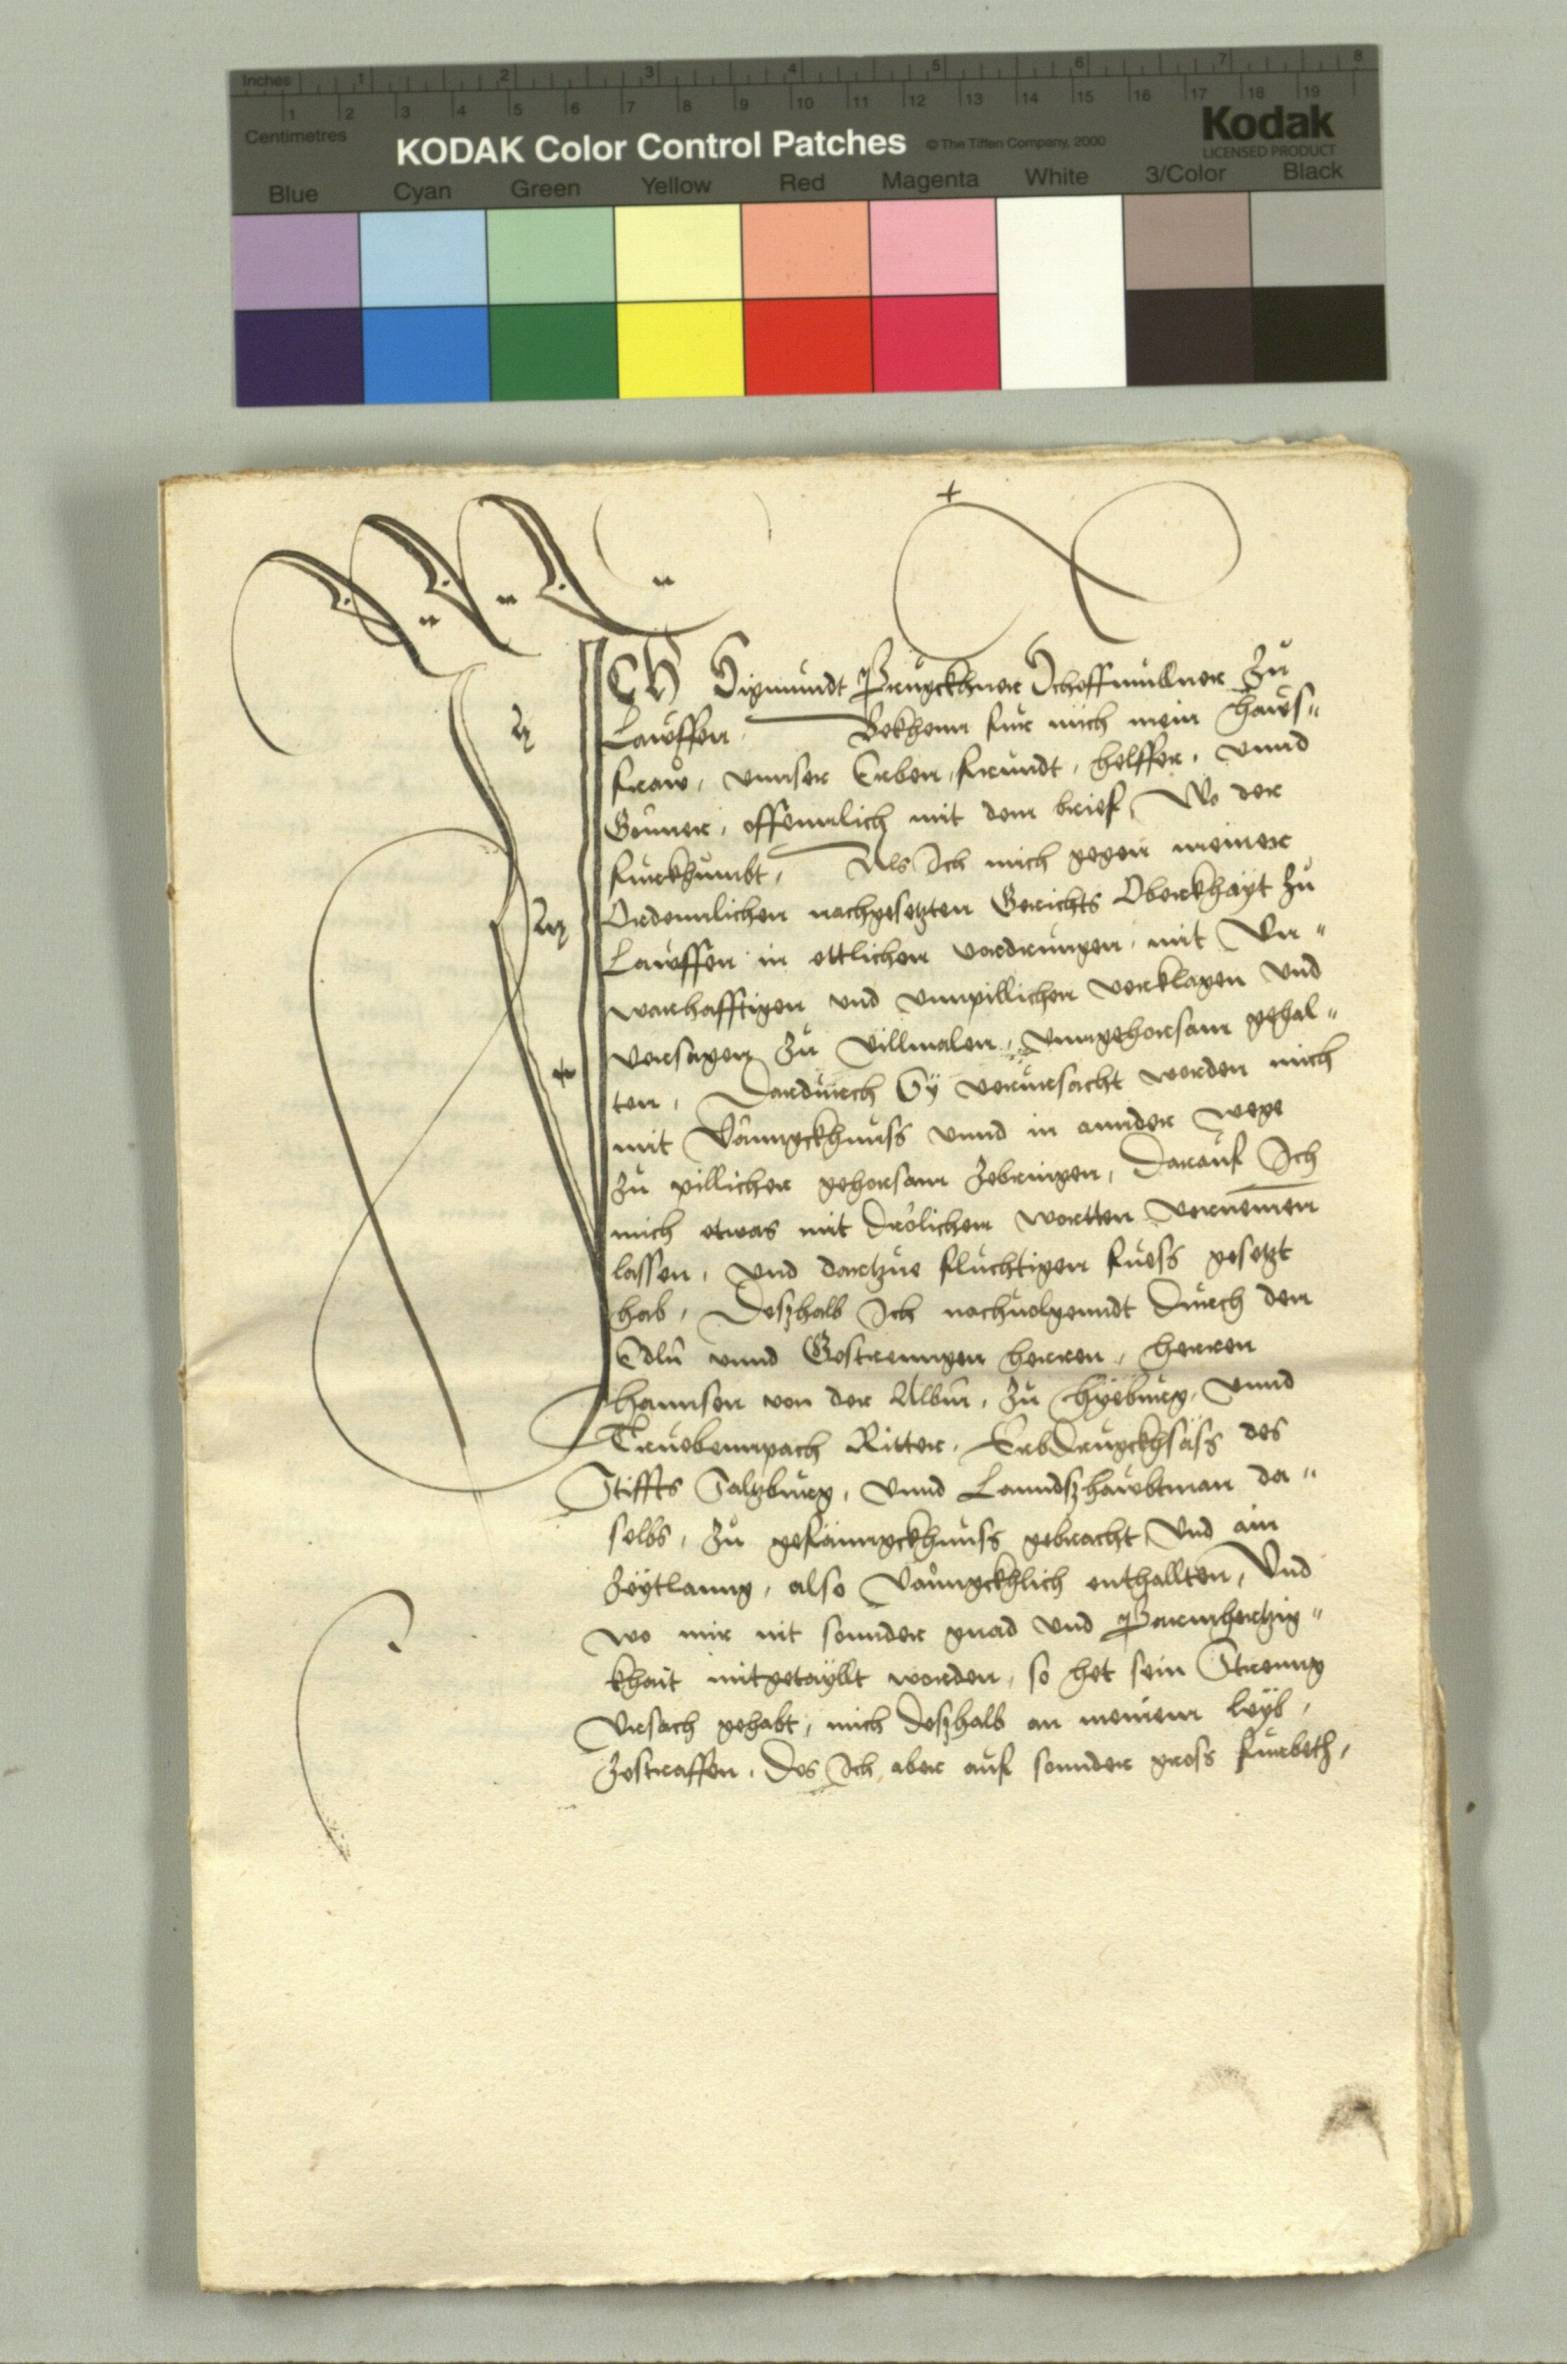 Inches 1 2 3 4 5 6 7 8
Centimetres 1 2 3 4 5 6 7 8 9 10 11 12 13 14 15 16 17 18 19
KODAK Color Control Patches © The Tiffen Company, 2000 Kodak
LICENSED PRODUCT
Blue Cyan Green Yellow Red Magenta White 3/Color Black
ICH Sigmundt Prugckhner Schoffmullner Zu
Lauffen Bekhenn fur mich mein haws"
fraw, vnnser Erben, frundt, helffer, vnnd
Gönner, offennlich mit dem brief, Wo der
furkhumbt, Als Ich mich gegen meiner
Ordennlichen nachgesetzten Gerichts Oberkhayt Zu
Lauffen in ettlichen vordrungen, mit Vn"
warhafftigen vnd vnnpillichen verklagen vnd
versagen Zu Villmalen, vnngehorsam gehal"
ten, Dardurch Sÿ verursacht worden mich
mit Vännngckhnuss vnnd in annder wege
Zu pillicher gehorsam Zebringen, Darauf Ich
mich etwas mit drölichen wortten vernemen
lassen, vnd dartzue fluchtigen fuess gesetzt
hab, Deszhalb Ich nachuolgenndt Durch den
Edln vnnd Gestrenngen herren, herren
Hannsen von der Albm, Zu Hyeburg, vnnd
Truebennpach Ritter, Erbdrugckhsäss des
Stiffts Saltzburg, vnnd Lanndszhawbtman da"
selbs, Zu gefänngckhnuss gebracht Vnd ain
Zeÿtlanng, also Vänngckhlich enthallten, Vnd
wo mir nit sonnder gnad vnd Parmhertzig"
khait mitgetayllt worden, so het sein Strenng
Vrsach gehabt, mich deszhalb an meinem leÿb,
Zestraffen, Des Ich aber auf sonnder gross furbeth,